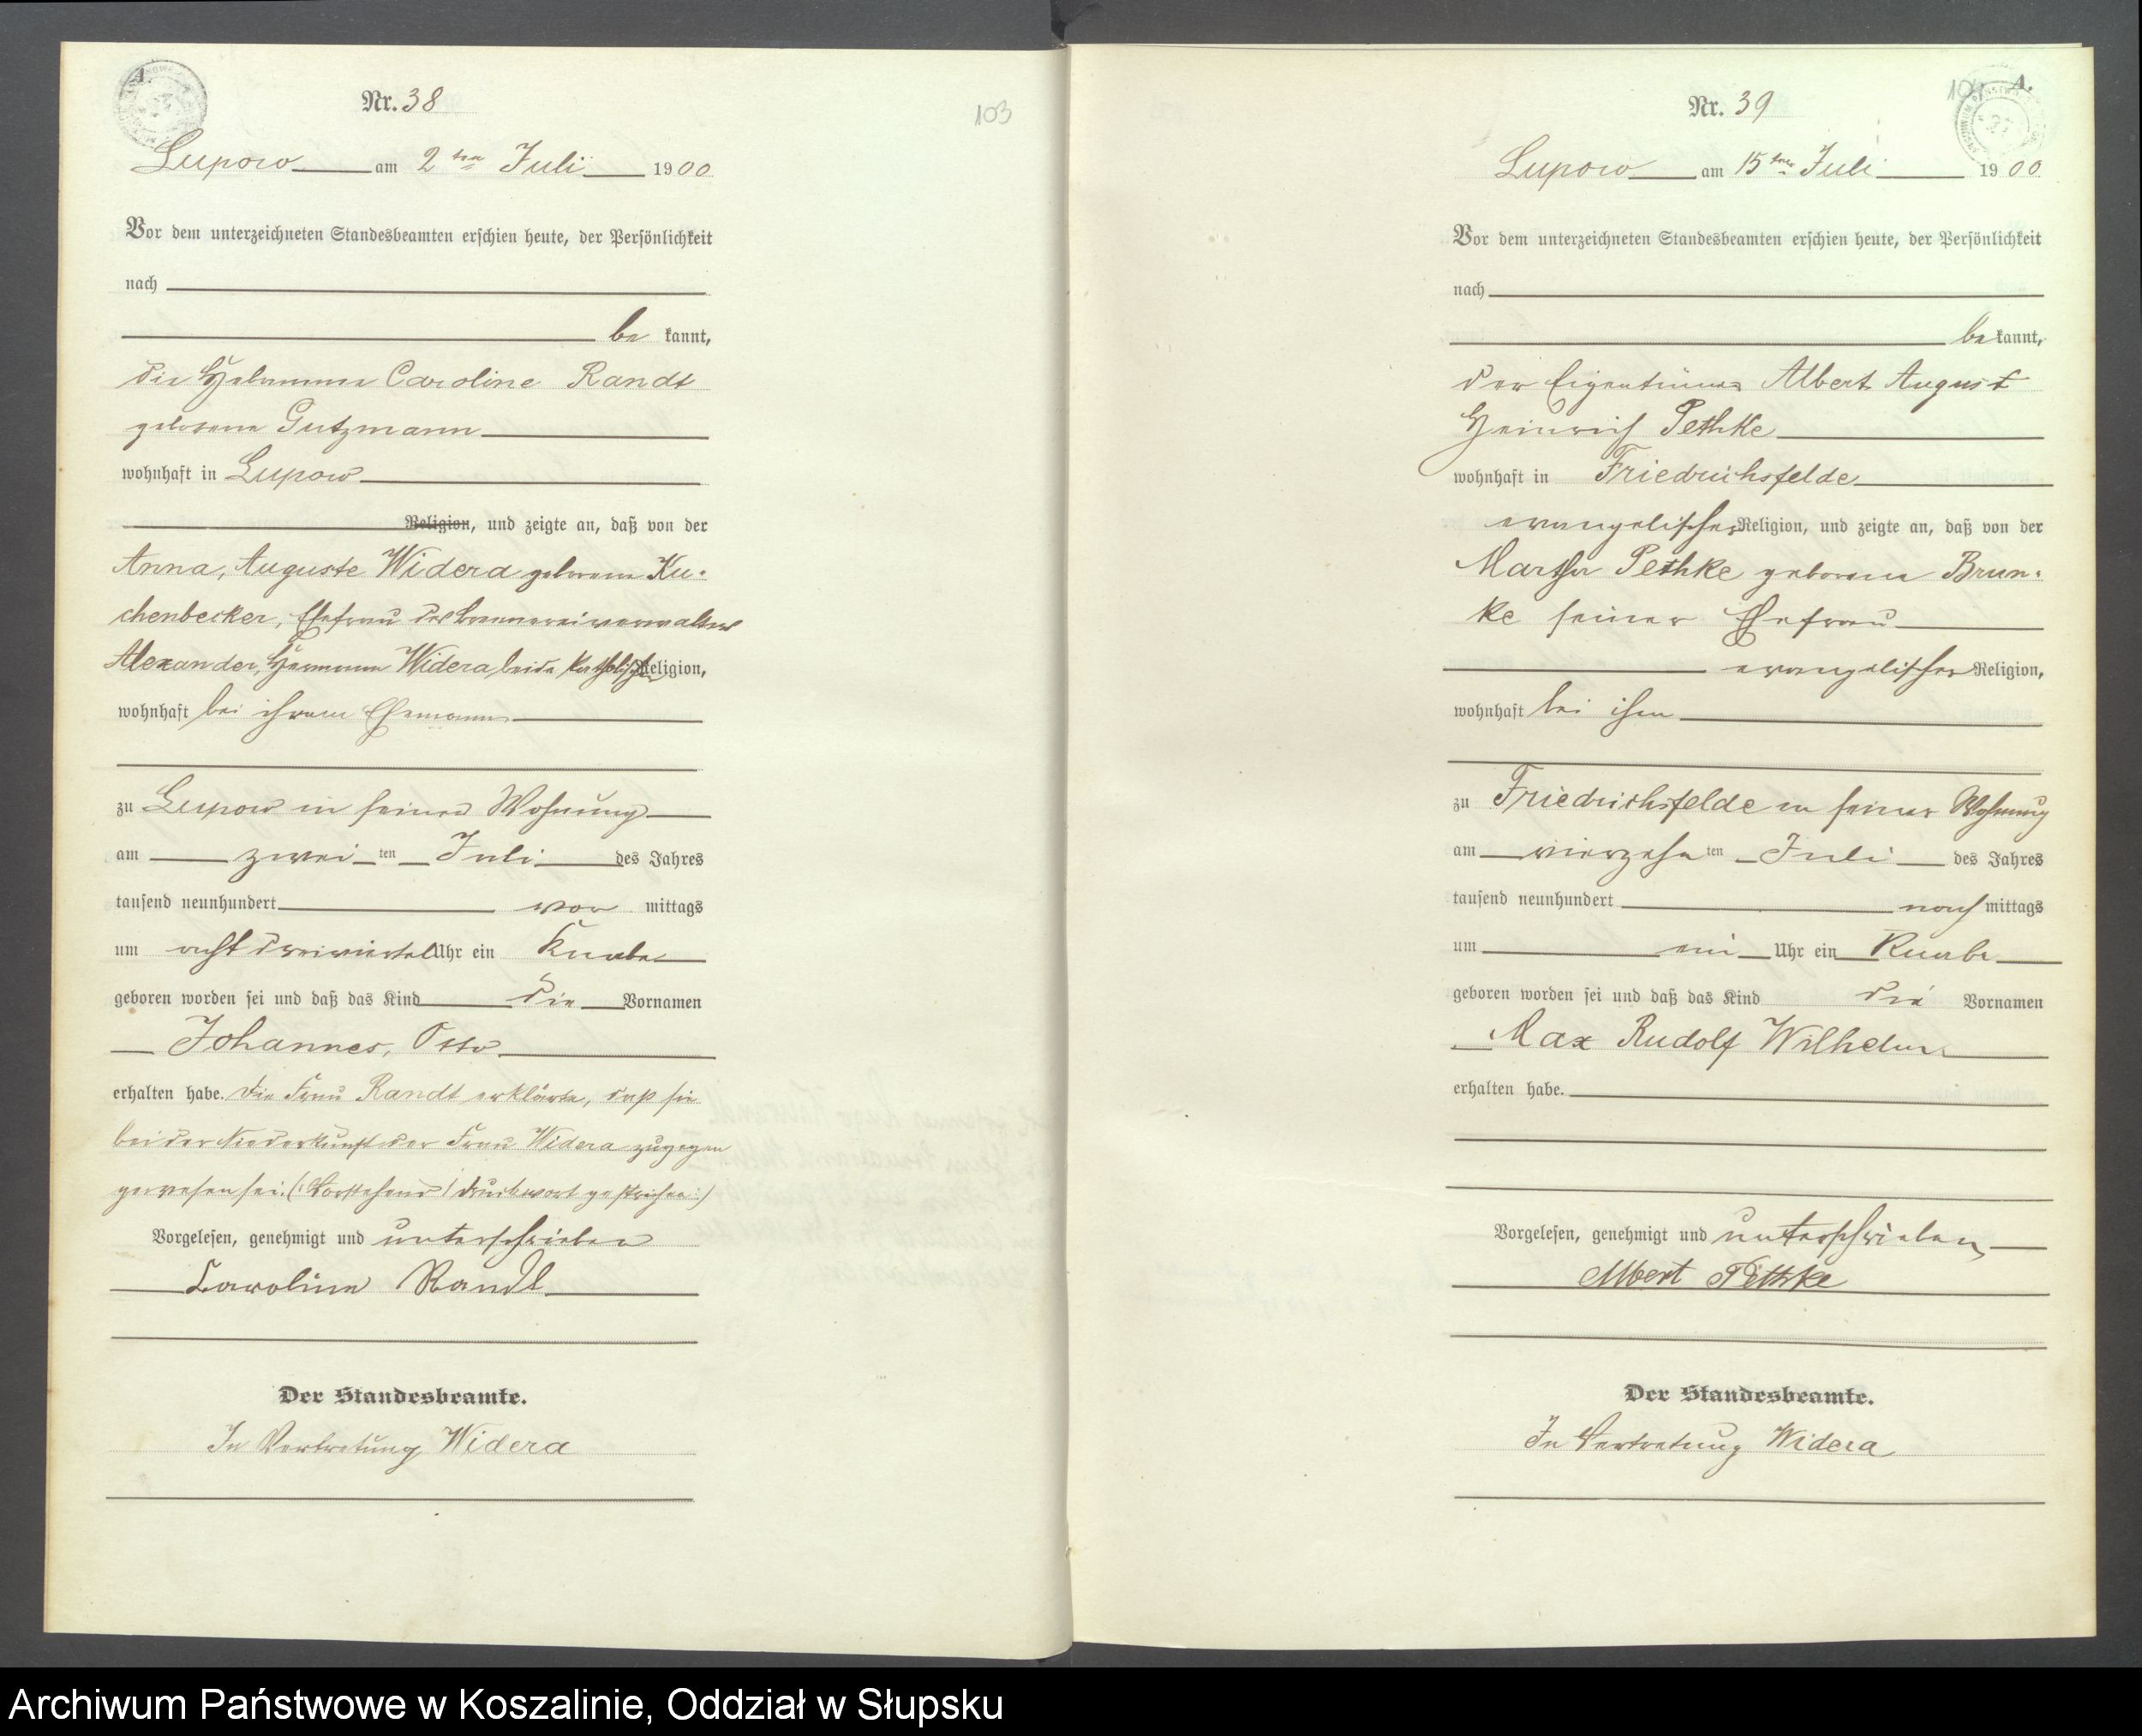 A.
Nr. 38
Lupow am 2ten Juli 1900
Vor dem unterzeichneten Standesbeamten erschien heute, der Persönlichkeit
nach
be kannt,
die Hebamme Caroline Randt
geborene Gutzmann
wohnhaft in Lupow
Religion, und zeigte an, daß von der
Anna, Auguste Widera geborene Ku-
chenbecker, Ehefrau des Brennereiverwalters
Alexander, Hermann Widera, beide katholischer Religion,
wohnhaft bei ihrem Ehemanne
zu Lupow in seiner Wohnung
am zwei ten Juli des Jahres
tausend neunhundert vor mittags
um acht dreiviertel Uhr ein Knabe
geboren worden sei und daß das Kind die Vornamen
Johannes, Otto
erhalten habe. Die Frau Randt erklärte, daß sie
bei der Niederkunft der Frau Widera zugegen
gewesen sei. (: Vorstehend 1 Druckwort gestrichen :)
Vorgelesen, genehmigt und unterschrieben
Caroline Randt
Der Standesbeamte.
In Vertretung Widera
103
A.
Nr. 39
Lupow am 15ten Juli 1900
Vor dem unterzeichneten Standesbeamten erschien heute, der Persönlichkeit
nach
be kannt,
der Eigentümer Albert August
Heinrich Pethke
wohnhaft in Friedrichsfelde
evangelischer Religion, und zeigte an, daß von der
Martha Pethke geborene Brun-
ke seiner Ehefrau
evangelischer Religion,
wohnhaft bei ihm
zu Friedrichsfelde in seiner Wohnung
am vierzehn ten Juli des Jahres
tausend neunhundert nach mittags
um ein Uhr ein Knabe
geboren worden sei und daß das Kind die Vornamen
Max Rudolf Wilhelm
erhalten habe.
Vorgelesen, genehmigt und unterschrieben
Albert Pethke
Der Standesbeamte.
In Vertretung Widera
Archiwum Państwowe w Koszalinie, Oddział w Słupsku